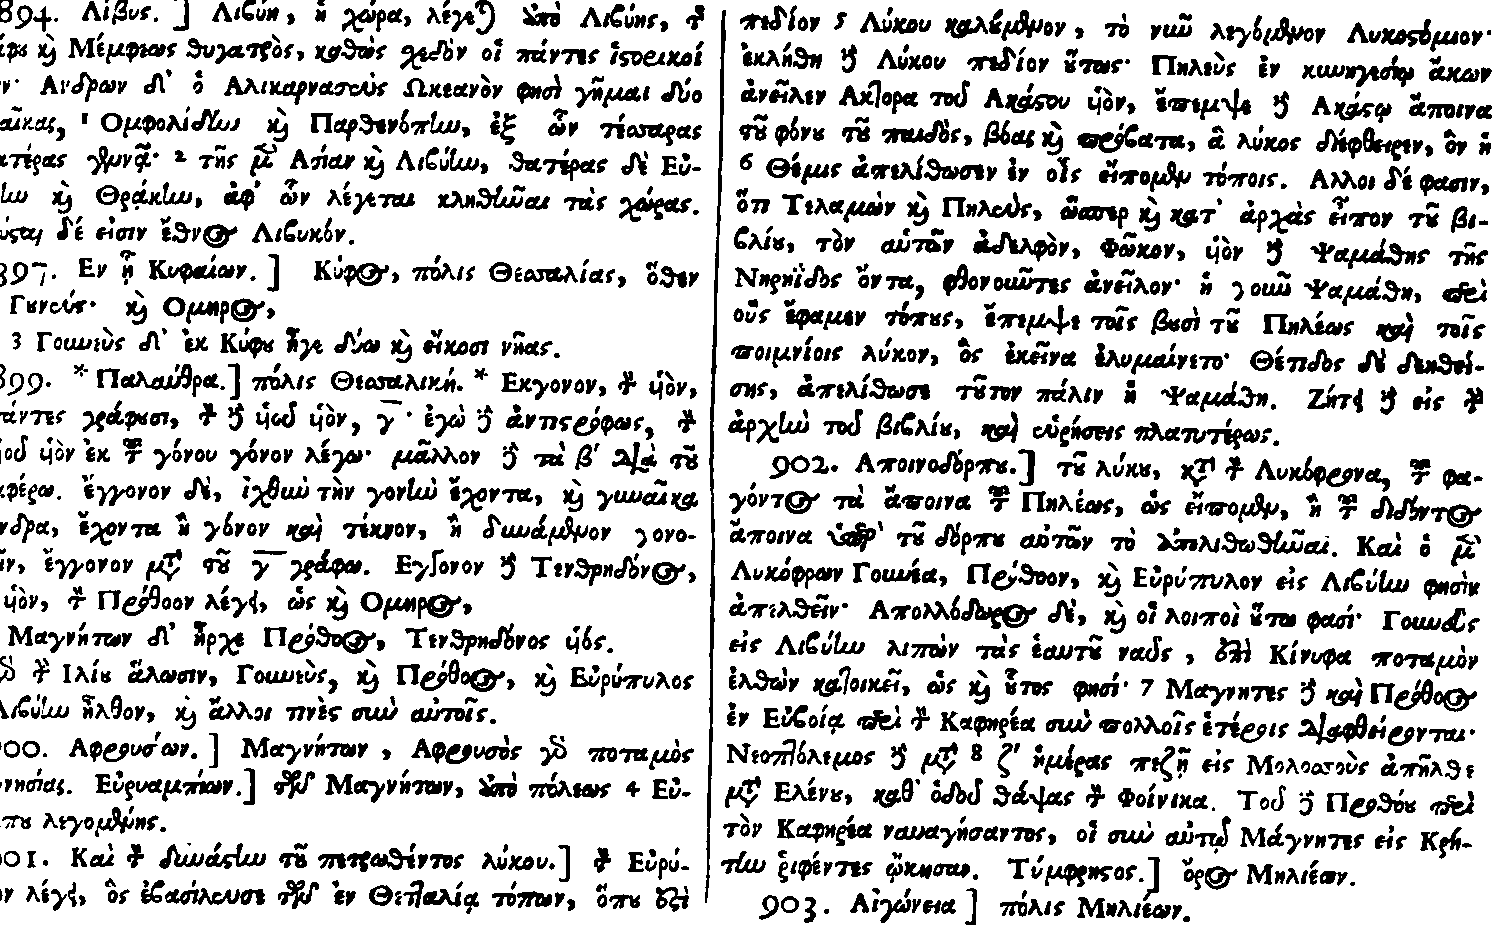 894. Λίβυς.] Λιβύη, ἡ χώρα, λέγεται ὑπὸ Λιβύης, τῆς
καὶ Μέμφιως θυγατρὸς, καθὼς χεδὸν οἱ πάντες ἱστορικοί
Ανδρων δὲ ὁ Αλικαρνασεὺς Ωκεανὸν φησὶ γῆμαι δύο
1 Ομφολίδlω καὶ Παρθενόπlω, ἐξ ὧν τέσσαρας
2 τῆς μὲν Ασίαν καὶ Λιβύlω, θατέρας δὲ Εὐ-
καὶ Θρᾴκlω, ἀφ' ὧν λέγεται κληθlῶαι τὰς χώρας.
δέ εἰσιν ἔθνος Λιβυκόν.
897. Εν ᾗ Κυφαίων.] Κύφος, πόλις Θεσσαλίας, ὅθεν
Γυνεύς· καὶ Ομηρος,
3 Γουνεὺς δ' ἐκ Κύφου ἦγε δύω καὶ εἴκοσι νῆας.
899. * Παλαύθρα.] πόλις Θεσσαλική. * Εκγονον, τὸν ὑὸν,
γράφουσι, τὸν δὲ ὑοῦ ὑὸν, γ· ἐγὼ δὲ ἀντιστρόφως, τὸν
ὑὸν ἐκ τῶν γόνου γόνον λέγω· μᾶλλον δὲ τὰ β' διὰ τοῦ
ἔγγονον δὲ, ἰχθωῦ τὴν γονlὼ ἔχοντα, καὶ γυναῖκα
ἔχοντα ἢ γόνον καὶ τέκνον, ἢ δυνάμενον γονο-
ἔγγονον μετὰ τοῦ γ γράφω. Εγγονον δὲ Τενθρηδόνος,
ὑὸν, τὸν Πρόθοον λέγει, ὡς καὶ Ομηρος,
Μαγνήτων δ' ἦρχε Πρόθοος, Τενθρηδόνος ὑός.
τὴν Ιλίου ἅλωσιν, Γουνεὺς, καὶ Πρόθοος, καὶ Εὐρύπυλος
ἦλθον, καὶ ἄλλοι τινὲς σὺν αὐτοῖς.
900. Αφρουσίων.] Μαγνήτων, Αφρουσὸς γὰρ ποταμὸς
Εὐρυαμπίων.] τῶν Μαγνήτων, ἀπὸ πόλεως 4 Εὐ-
λεγομένης.
901. Καὶ τὸν δυνάστlω τοῦ πετρωθέντος λύκου.] τὸν Εὐρύ-
λέγει, ὃς ἐβασίλευσε τῶν ἐν Θετταλίᾳ τόπων, ὅπου ἐπὶ
πεδίον 5 Λύκου καλούμενον, τὸ νῦν λεγόμενον Λυκοστόμιον·
ἐκλήθη δὲ Λύκου πεδίον οὕτως· Πηλεὺς ἐν κυνηγεσίῳ ἄκων
ἀνεῖλεν Ακτορα τοῦ Ακάστου ὑὸν, ἔπεμψε δὲ Ακάστῳ ἄποινα
τοῦ φόνου τοῦ παιδὸς, βόας καὶ πρόβατα, ἃ λύκος διέφθειρεν, ὃν ἡ
6 Θέμις ἀπελίθωσεν ἐν οἷς εἴπομεν τόποις. Αλλοι δέ φασιν,
ὅτι Τελαμὼν καὶ Πηλεὺς, ὥσπερ καὶ κατ' ἀρχὰς εἶπον τοῦ βι-
βλίου, τὸν αὐτῶν ἀδελφὸν, Φῶκον, ὑὸν δὲ Ψαμάθης τῆς
Νηρηΐδος ὄντα, φθονοῦντες ἀνεῖλον· ἡ γοῦν Ψαμάθη, περὶ
οὓς ἔφαμεν τόπους, ἔπεμψε τοῖς βουσὶ τοῦ Πηλέως καὶ τοῖς
ποιμνίοις λύκον, ὃς ἐκεῖνα ἐλυμαίνετο· Θέτιδος δὲ δεηθεί-
σης, ἀπελίθωσε τοῦτον πάλιν ἡ Ψαμάθη. Ζήτει δὲ εἰς τὴν
ἀρχlὼ τοῦ βιβλίου, καὶ εὑρήσεις πλατυτέρως.
902. Αποινοδόρπου.] τοῦ λύκου, κατὰ τὸν Λυκόφρονα, τοῦ φα-
γόντος τὰ ἄποινα τοῦ Πηλέως, ὡς εἴπομεν, ἢ τοῦ διδόντος
ἄποινα ὑπὲρ τοῦ δόρπου αὐτῶν τὸ ἀπολιθωθlῶαι. Καὶ ὁ μὲν
Λυκόφρων Γουνέα, Πρόθοον, καὶ Εὐρύπυλον εἰς Λιβύlω φησὶν
ἀπελθεῖν· Απολλόδωρος δὲ, καὶ οἱ λοιποὶ οὕτω φασί· Γουνεὺς
εἰς Λιβύlω λιπὼν τὰς ἑαυτοῦ ναῦς, ἐπὶ Κίνυφα ποταμὸν
ἐλθὼν κατοικεῖ, ὡς καὶ οὗτος φησί· 7 Μαγνητες δὲ καὶ Πρόθοος
ἐν Εὐβοίᾳ περὶ τὸν Καφηρέα σὺν πολλοῖς ἑτέροις διαφθείρονται·
Νεοπτόλεμος δὲ μετὰ 8 ζ' ἡμέρας πεζῇ εἰς Μολοσσοὺς ἀπῆλθε
μετὰ Ελένου, καθ' ὁδοῦ θάψας τὸν Φοίνικα. Τοῦ δὲ Προθόου περὶ
τὸν Καφηρέα ναυαγήσαντος, οἱ σὺν αὐτῷ Μάγνητες εἰς Κρή-
τlω ῥιφέντες ᾤκησαν. Τύμφρηστος.] ὄρος Μηλιέων.
903. Αἰγώνεια] πόλις Μηλιέων.